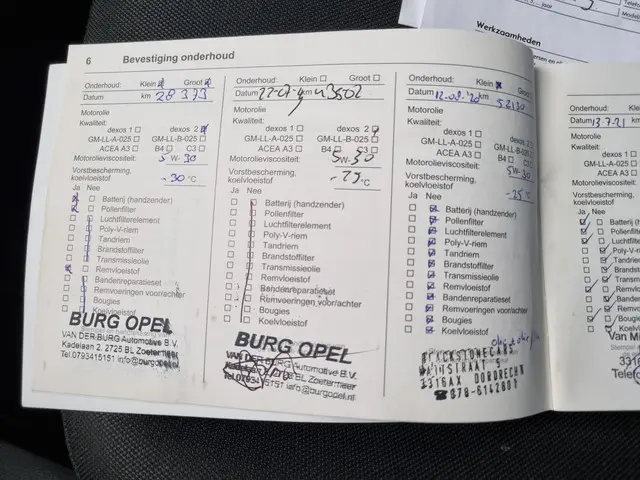 6 Bevestiging onderhoud
Onderhoud: Klein Groot
Datum km 28 373
Motorolie
Kwaliteit:
dexos 1 dexos 2
GM-LL-A-025 GM-LL-B-025
ACEA A3 B4 C3
Motorolieviscositeit: 5 W- 30
Vorstbescherming,
koelvloeistof - 30 °C
Ja Nee
Batterij (handzender)
Pollenfilter
Luchtfilterelement
Poly-V-riem
Tandriem
Brandstoffilter
Transmissieolie
Remvloeistof
Bandenreparatieset
Remvoeringen voor/achter
Bougies
Koelvloeistof
BURG OPEL
VAN DER BURG Automotive B.V.
Kadelaan 2, 2725 BL Zoetermeer
Tel.0793415151 info@burgopel.nl
Onderhoud: Klein Groot
Datum 22-07- km 43502
Motorolie
Kwaliteit:
dexos 1 dexos 2
GM-LL-A-025 GM-LL-B-025
ACEA A3 B4 C3
Motorolieviscositeit: 5W-30
Vorstbescherming,
koelvloeistof - 25 °C
Ja Nee
Batterij (handzender)
Pollenfilter
Luchtfilterelement
Poly-V-riem
Tandriem
Brandstoffilter
Transmissieolie
Remvloeistof
Bandenreparatieset
Remvoeringen voor/achter
Bougies
Koelvloeistof
BURG OPEL
VAN DER BURG Automotive B.V.
Kadelaan 2, 2725 BL Zoetermeer
Tel.0793415151 info@burgopel.nl
Onderhoud: Klein Groot
Datum 12-08-'20 km 52130
Motorolie
Kwaliteit:
dexos 1 dexos 2
GM-LL-A-025 GM-LL-B-025
ACEA A3 B4 C3
Motorolieviscositeit: 5W-30
Vorstbescherming,
koelvloeistof -25 °C
Ja Nee
Batterij (handzender)
Pollenfilter
Luchtfilterelement
Poly-V-riem
Tandriem
Brandstoffilter
Transmissieolie
Remvloeistof
Bandenreparatieset
Remvoeringen voor/achter
Bougies
Koelvloeistof
3316AX DORDRECHT
☎078-6142801
Onderhoud:
Datum 13.7-21 km
Motorolie
Kwaliteit:
GM-LL-A-025
ACEA A3
Motorolieviscositeit:
Vorstbescherming,
koelvloeistof
Ja Nee
Batterij
Pollenfilter
Van M
Werkzaamheden